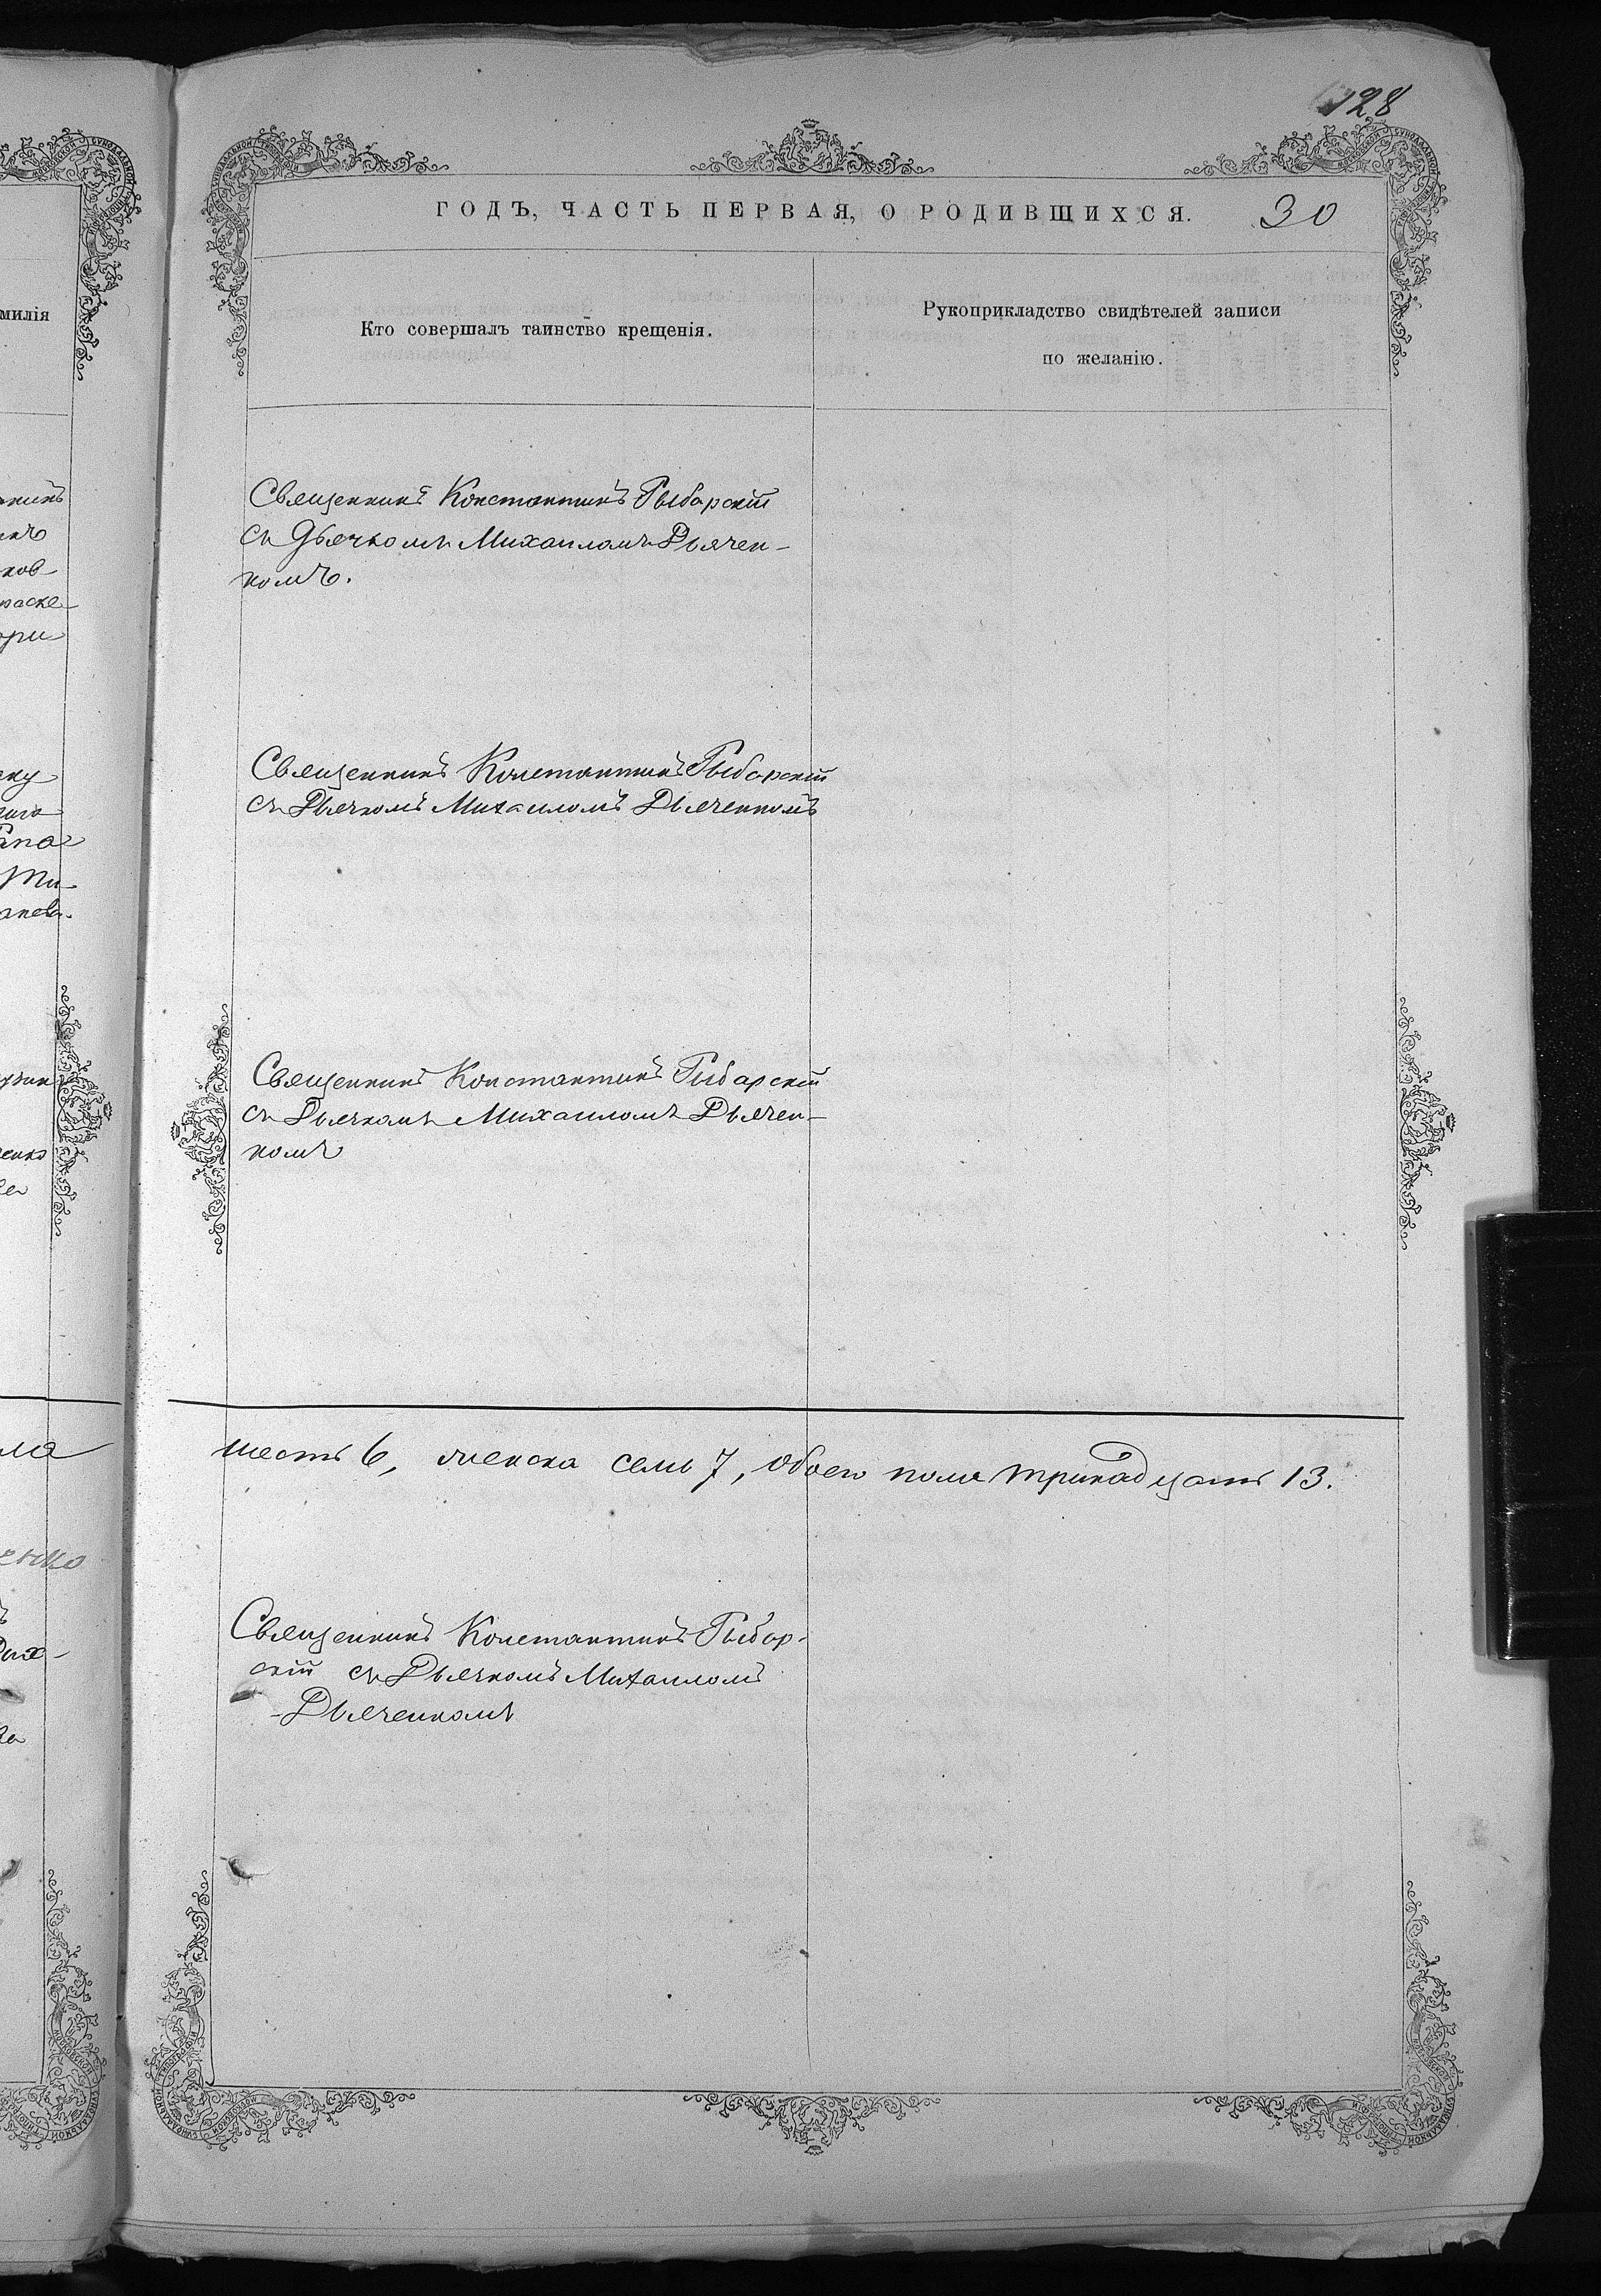 128
ГОДЪ, ЧАСТЬ ПЕРВАЯ, О РОДИВШИХСЯ. 30
милія
Кто совершалъ таинство крещенія.
Рукоприкладство свидѣтелей записи
по желанію.
Священникъ Константинъ Рыбарскій
съ Дьячкомъ Михаиломъ Дьячен-
комъ.
Священникъ Константинъ Рыбарскій
съ Дьячкомъ Михаиломъ Дьяченкомъ
Священникъ Константинъ Рыбарскій
съ Дьячкомъ Михаиломъ Дьячен-
комъ
шесть 6, женска семь 7, обоего пола тринадцать 13.
Священникъ Константинъ Рыбар-
скій съ Дьячкомъ Михаиломъ
Дьяченкомъ